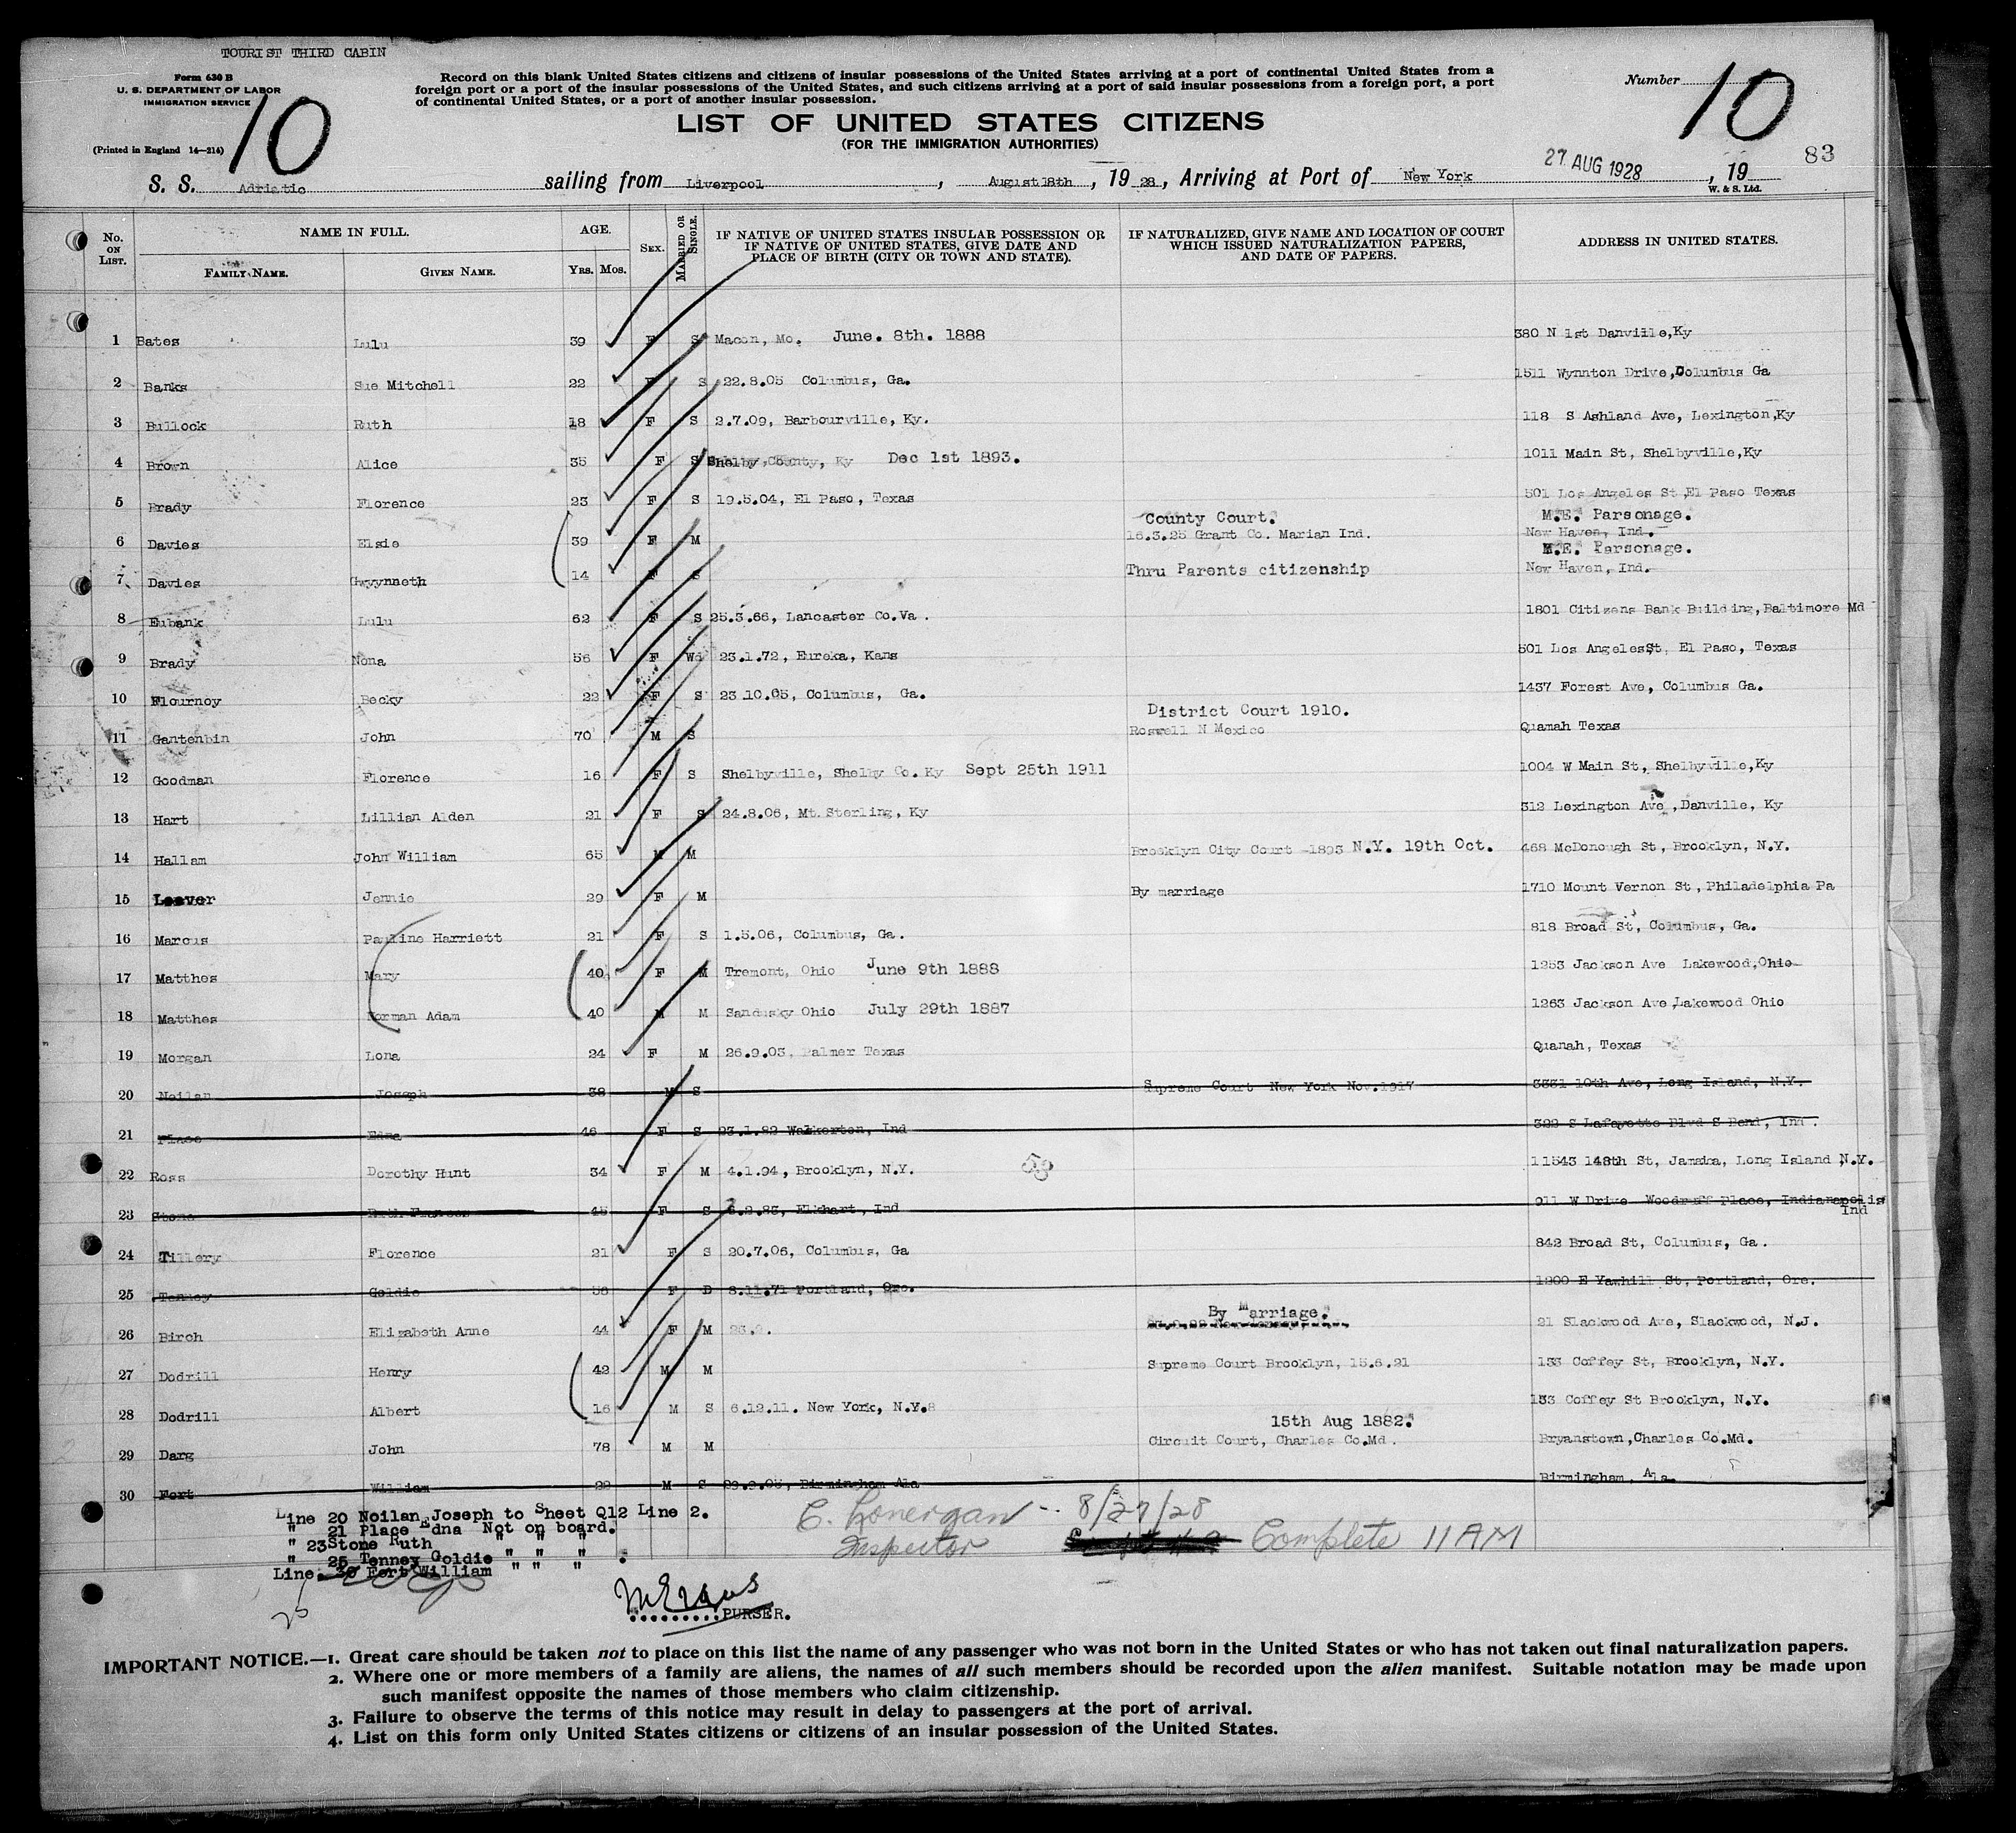 TOURIST THIRD CABIN
Form 630 B
U. S. DEPARTMENT OF LABOR
IMMIGRATION SERVICE
(Printed in England 14—214)
10
Record on this blank United States citizens and citizens of insular possessions of the United States arriving at a port of continental United States from a
foreign port or a port of the insular possessions of the United States, and such citizens arriving at a port of said insular possessions from a foreign port, a port
of continental United States, or a port of another insular possession.
Number 10
LIST OF UNITED STATES CITIZENS
(FOR THE IMMIGRATION AUTHORITIES)
83
S. S. Adriatic sailing from Liverpool, August 18th, 19 28, Arriving at Port of New York 27 AUG 1928, 19
W. & S. Ltd.
No. ON LIST. NAME IN FULL. FAMILY NAME. GIVEN NAME. AGE. YRS. MOS. SEX. MARRIED OR SINGLE. IF NATIVE OF UNITED STATES INSULAR POSSESSION OR IF NATIVE OF UNITED STATES, GIVE DATE AND PLACE OF BIRTH (CITY OR TOWN AND STATE). IF NATURALIZED, GIVE NAME AND LOCATION OF COURT WHICH ISSUED NATURALIZATION PAPERS, AND DATE OF PAPERS. ADDRESS IN UNITED STATES.
1 Bates Lulu 39 F S Macon, Mo. June. 8th. 1888 380 N 1st Danville,Ky
2 Banks Sue Mitchell 22 F S 22.8.05 Columbus, Ga. 1511 Wynnton Drive,Columbus Ga
3 Bullock Ruth 18 F S 2.7.09, Barbourville, Ky. 118 S Ashland Ave, Lexington,Ky
4 Brown Alice 35 F S Shelby,County, Ky Dec 1st 1893. 1011 Main St, Shelbyville,Ky
5 Brady Florence 23 F S 19.5.04, El Paso, Texas 501 Los Angeles St,El Paso Texas
County Court. M.E. Parsonage.
6 Davies Elsie 39 F M 16.3.25 Grant Co. Marian Ind. New Haven, Ind.
M.E. Parsonage.
7 Davies Gwynneth 14 F S Thru Parents citizenship New Haven, Ind.
8 Eubank Lulu 62 F S 25.3.66, Lancaster Co.Va. 1801 Citizens Bank Building,Baltimore Md
9 Brady Nona 56 F Wd 23.1.72, Eureka, Kans 501 Los AngelesSt, El Paso, Texas
10 Flournoy Becky 22 F S 23.10.05, Columbus, Ga. 1437 Forest Ave, Columbus Ga.
District Court 1910.
11 Gantenbin John 70 M S Roswell N Mexico Quamah Texas
12 Goodman Florence 16 F S Shelbyville, Shelby Co. Ky Sept 25th 1911 1004 W Main St, Shelbyville,Ky
13 Hart Lillian Alden 21 F S 24.8.06, Mt. Sterling, Ky 312 Lexington Ave,Danville, Ky
14 Hallam John William 65 M M Brooklyn City Court 1893 N.Y. 19th Oct. 468 McDonough St, Brooklyn, N.Y.
15 Leaver Jennie 29 F M By marriage 1710 Mount Vernon St, Philadelphia Pa
16 Marcus Pauline Harriett 21 F S 1.5.06, Columbus, Ga. 818 Broad St, Columbus, Ga.
17 Matthes Mary 40 F M Tremont, Ohio June 9th 1888 1253 Jackson Ave Lakewood,Ohio
18 Matthes Norman Adam 40 M M Sandusky Ohio July 29th 1887 1263 Jackson Ave,Lakewood Ohio
19 Morgan Lona 24 F M 26.9.03, Palmer Texas Quanah, Texas
20 Neilan Joseph 38 M S Supreme Court New York Nov.1917 3331 10th Ave, Long Island, N.Y.
21 Place Edna 46 F S 23.1.82 Walkerton, Ind 322 S Lafayette Blvd S Bend, Ind.
22 Ross Dorothy Hunt 34 F M 4.1.94, Brooklyn, N.Y. 53 11543 148th St, Jamaica, Long Island N.Y.
23 Stone Ruth Frances 45 F S 6.2.83, Elkhart, Ind 911 W Drive Woodruff Place, Indianapolis Ind
24 Tillery Florence 21 F S 20.7.06, Columbus, Ga 842 Broad St, Columbus, Ga.
25 Tenney Goldie 56 F D 8.11.71 Portland, Ore. 1200 E Yamhill St, Portland, Ore.
By Marriage.
26 Birch Elizabeth Anne 44 F M 21 Slackwood Ave, Slackwood, N.J.
27 Dodrill Henry 42 M M Supreme Court Brooklyn, 15.6.21 133 Coffey St, Brooklyn, N.Y.
28 Dodrill Albert 16 M S 6.12.11. New York, N.Y. 133 Coffey St Brooklyn, N.Y.
15th Aug 1882.
29 Darg John 78 M M Circuit Court, Charles Co.Md. Bryanstown,Charles Co.Md.
30 Fort William 22 M S 29.9.05, Birmingham Ala Birmingham, Ala
Line 20 Noilan Joseph to Sheet Q12 Line 2.
" 21 Place Edna Not on board.
" 23Stone Ruth " " "
" 25 Tenney Goldie " " "
Line. 30 Fort William " " "
25
C. Lonergan -- 8/27/28
Inspector Complete 11 AM
PURSER.
IMPORTANT NOTICE.—1. Great care should be taken not to place on this list the name of any passenger who was not born in the United States or who has not taken out final naturalization papers.
2. Where one or more members of a family are aliens, the names of all such members should be recorded upon the alien manifest. Suitable notation may be made upon
such manifest opposite the names of those members who claim citizenship.
3. Failure to observe the terms of this notice may result in delay to passengers at the port of arrival.
4. List on this form only United States citizens or citizens of an insular possession of the United States.